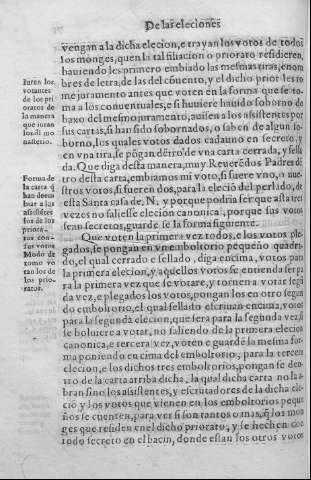 De las eleciones
vengan a la dicha elecion, e trayan los votos de todos
los monges, que en la tal filiacion o priorato residieren,
hauiendoles primero embiado las mesmas tiras, e nom
bres de letra, de las del conuento, y el dicho prior les to
me juramento antes que voten en la forma que se to-
ma a los conuentuales, e si huuiere hauido soborno de
baxo del mesmo juramento, auisen a los asistentes por
sus cartas, si han sido sobornados, o saben de algun so-
borno, los quales votos dados cada uno en secreto, y
en vna tira, se põgan dẽtro de vna carta cerrada, y sella
da. Que diga desta manera, muy Reuerẽdos Padres dẽ
tro desta carta, embiamos mi voto, si fuere vno, o nue-
stros votos, si fueren dos, para la eleciõ del perlado, de
esta Santa casa de, N, y porque podria ser que asta tres
vezes no saliesse elecion canonica, porque sus votos
sean secretos, guarde se la forma siguiente.
Que voten la primera vez todos, e los votos ple-
gados, se pongan en vn emboltorio pequeño quadra-
do, el qual cerrado e sellado, diga encima, votos para
la primera elecion, y aquellos votos se entienda ser pa
ra la primera vez que se votare, y tornen a votar segũ
da vez, e plegados los votos, pongan los en otro segun
do emboltorio, el qual sellado escriuan encima, votos
para la segunda elecion, que sera para la segunda vez, si
se boluiere a votar, no saliendo de la primera elecion
canonica, e tercera vez, voten e guardẽ la mesma for-
ma poniendo en cima del emboltorio, para la tercera
elecion, e los dichos tres emboltorios, pongan se den-
tro de la carta arriba dicha, la qual dicha carta no la a-
bran sino los asistentes, y escrutadores de la dicha ele-
ciõ y los votos que vienen en los emboltorios peque
ños se cuenten, para ver si son tantos o mas, q̃ los mon
ges que residen en el dicho priorato, y se hechen con
todo secreto en el bacin, donde estan los otros votos
Iuren los
votantes
de los pri
oratos de
la manera
que iuran
los dl mo
nasterio.
Forma de
la carta q̃
han de em
biar a los
asistẽtes
los de los
priora-
tos con
sus votos
Modo de
como vo
tan los de
los prio-
ratos.